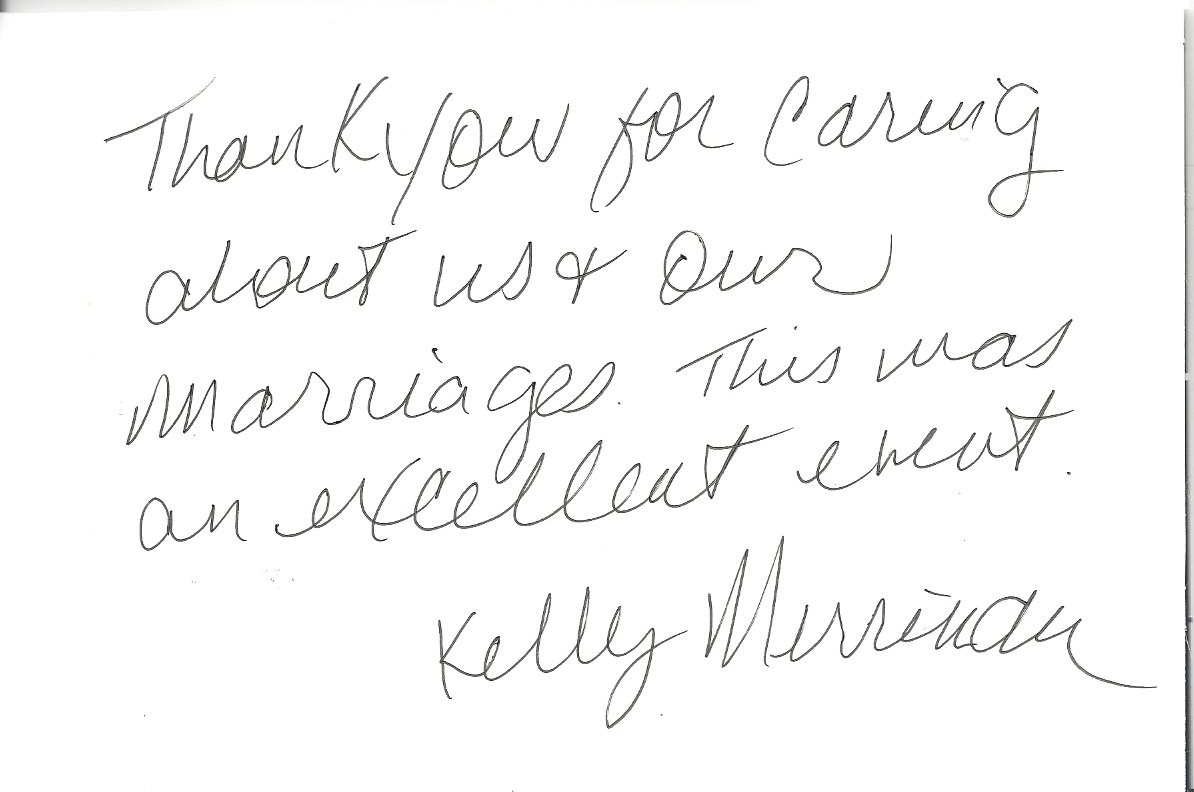 Thank you for caring
about us & our
marriages. This was
an excellent event.
Kelly